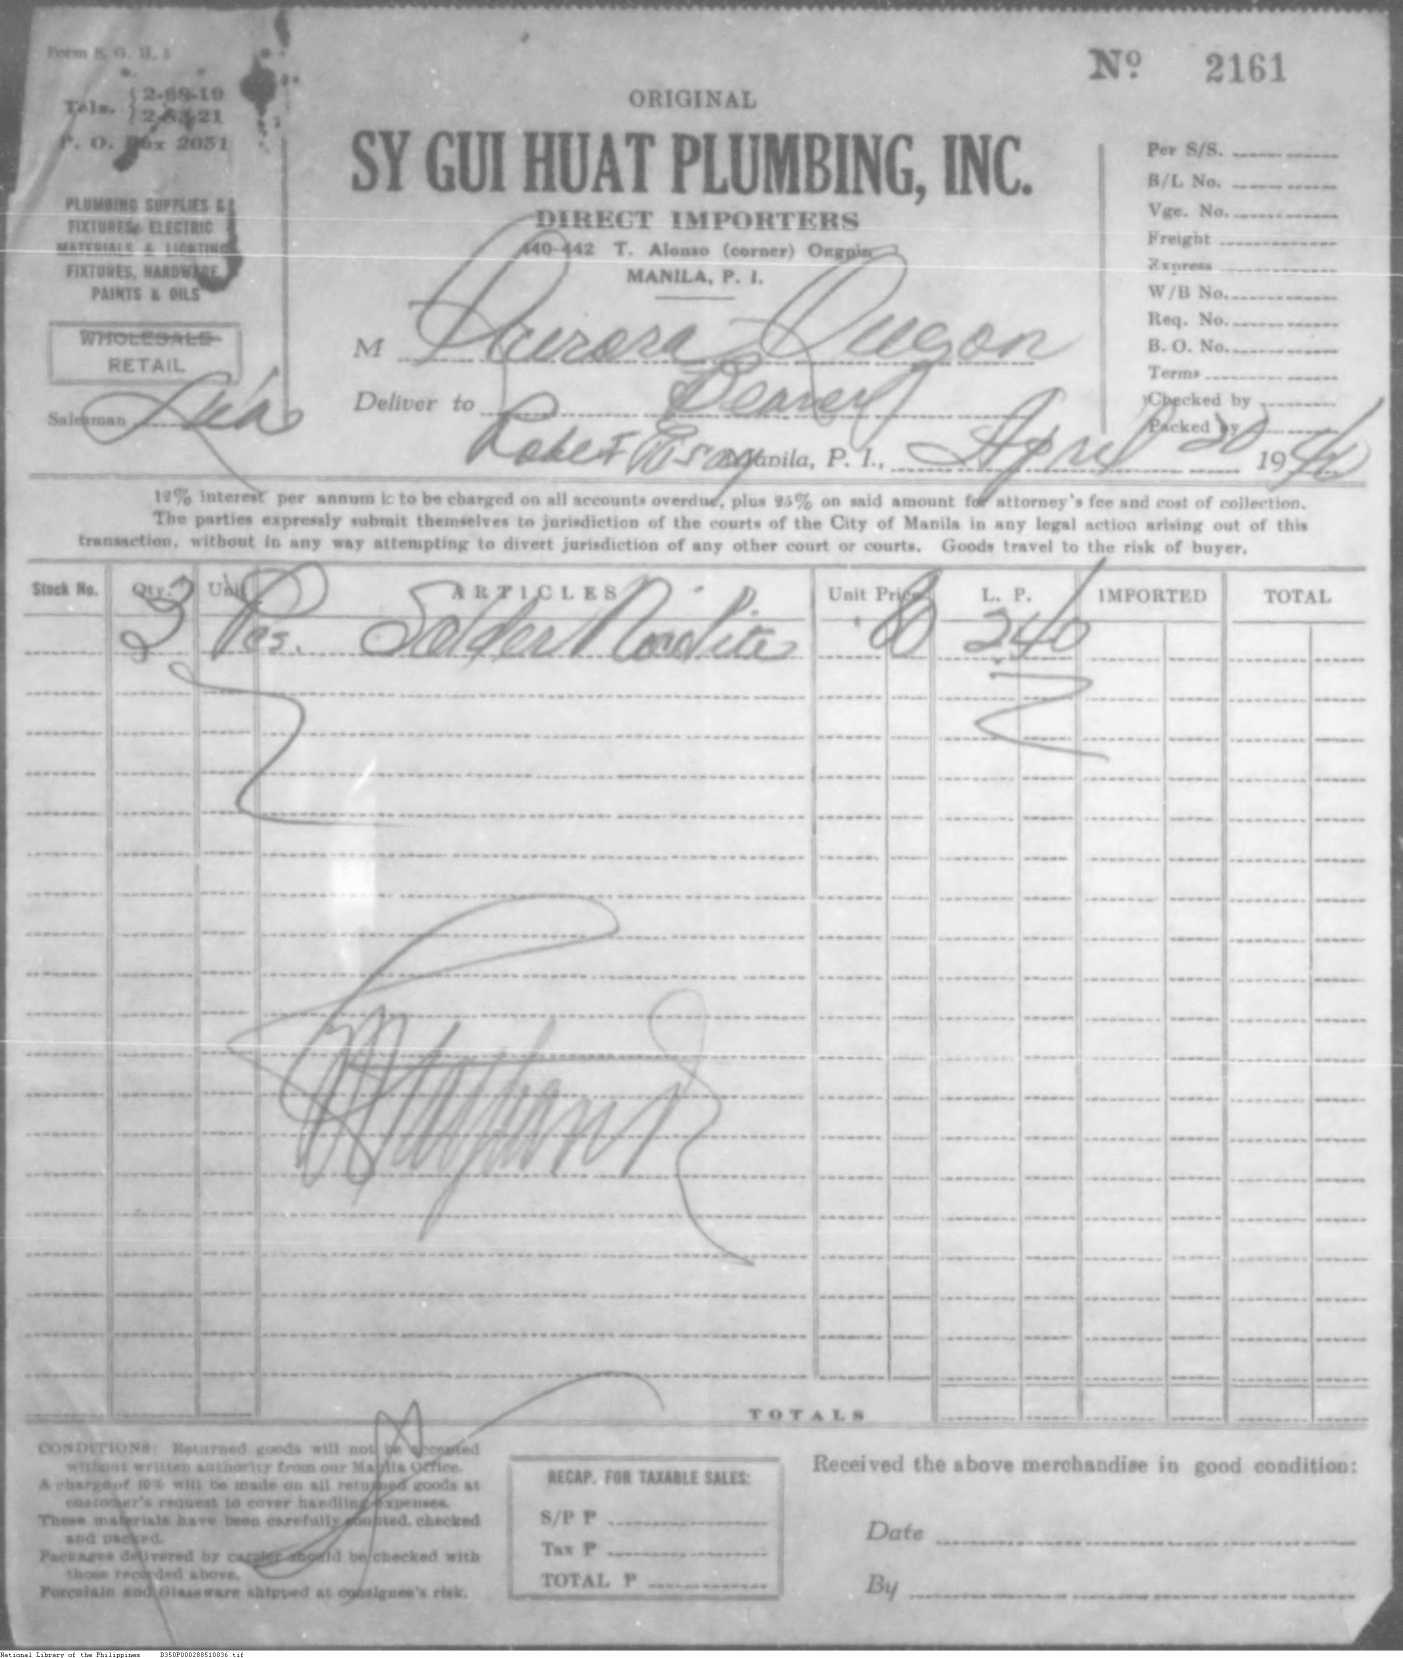 Form S. G. H. 1
Nº 2161
Tels. 2-68-19
2-83-21
P. O. Box 2031
ORIGINAL
SY GUI HUAT PLUMBING, INC.
DIRECT IMPORTERS
440-442 T. Alonso (corner) Ongpin
MANILA, P. I.
PLUMBING SUPPLIES &
FIXTURES, ELECTRIC
MATERIALS & LIGHTING
FIXTURES, HARDWARE,
PAINTS & OILS
WHOLESALE
RETAIL
Salesman
Per S/S.
B/L No.
Vge. No.
Freight
Express
W/B No.
Req. No.
B. O. No.
Terms
Checked by
Packed by
M Aurora Quezon
Deliver to
Manila, P. I., April 20 1940
12% interest per annum is to be charged on all accounts overdue, plus 25% on said amount for attorney's fee and cost of collection.
The parties expressly submit themselves to jurisdiction of the courts of the City of Manila in any legal action arising out of this
transaction, without in any way attempting to divert jurisdiction of any other court or courts. Goods travel to the risk of buyer.
Stock No. Qty. Unit ARTICLES Unit Price L. P. IMPORTED TOTAL
3 Pcs. Solder .80 2 40
TOTALS
CONDITIONS: Returned goods will not be accepted
without written authority from our Manila Office.
A charge of 10% will be made on all returned goods at
customer's request to cover handling expenses.
These materials have been carefully counted, checked
and packed.
Packages delivered by carrier should be checked with
those recorded above.
Porcelain and Glassware shipped at consignee's risk.
RECAP. FOR TAXABLE SALES:
S/P ₱
Tax ₱
TOTAL ₱
Received the above merchandise in good condition:
Date
By
National Library of the Philippines B350P000288510036.tif